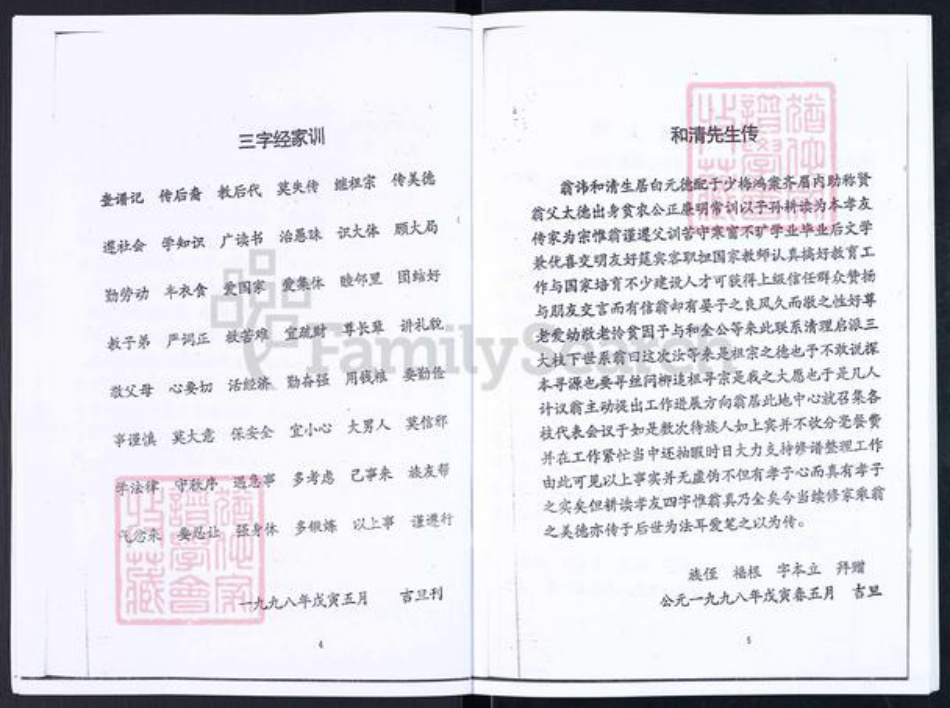 三字经家训
查谱记 传后裔 教后代 莫失传 继祖宗 传美德
遵社会 学知识 广读书 治愚昧 识大体 顾大局
勤劳动 丰衣食 爱国家 爱集体 睦邻里 团结好
教子弟 严词正 救苦难 宜疏财 尊长辈 讲礼貌
敬父母 心要切 活经济 勤奋强 用钱粮 要勤俭
事谨慎 莫大意 保安全 宜小心 大男人 莫信邪
学法律 守秩序 遇急事 多考虑 己事来 族友帮
气忿来 要忍让 强身体 多锻炼 以上事 谨遵行
一九九八年戊寅五月 吉旦刊
4
和清先生传
翁讳和清生居白元德配于少梅鸿案齐眉内助称贤
翁父太德出身贫农公正廉明常训以子孙耕读为本孝友
传家为宗惟翁谨遵父训苦守寒窗不旷学业毕业后文学
兼优喜交明友好筵宾客职担国家教师认真搞好教育工
作与国家培育不少建设人才可获得上级信任群众赞扬
与朋友交言而有信翁却有晏子之良风久而敬之性好尊
老爱幼敬老怜贫因予与和金公等来此联系清理启派三
大枝下世系翁曰这次汝等来是祖宗之德也予不敢说探
本寻源也要寻丝问柳追根寻宗是我之大愿也于是凡人
计议翁主动提出工作进展方向翁居此地中心就召集各
枝代表会议于如是数次待族人如上宾并不收分毫餐费
并在工作紧忙当中还抽暇时日大力支持修谱整理工作
由此可见以上事实并无虚伪不但有孝子心而真有孝子
之实矣但耕读孝友四字惟翁真乃全矣今当续修家乘翁
之美德亦传于后世为法耳爱笔之以为传。
族侄 福根 字本立 拜赠
公元一九九八年戊寅春五月 吉旦
5
FamilySearch